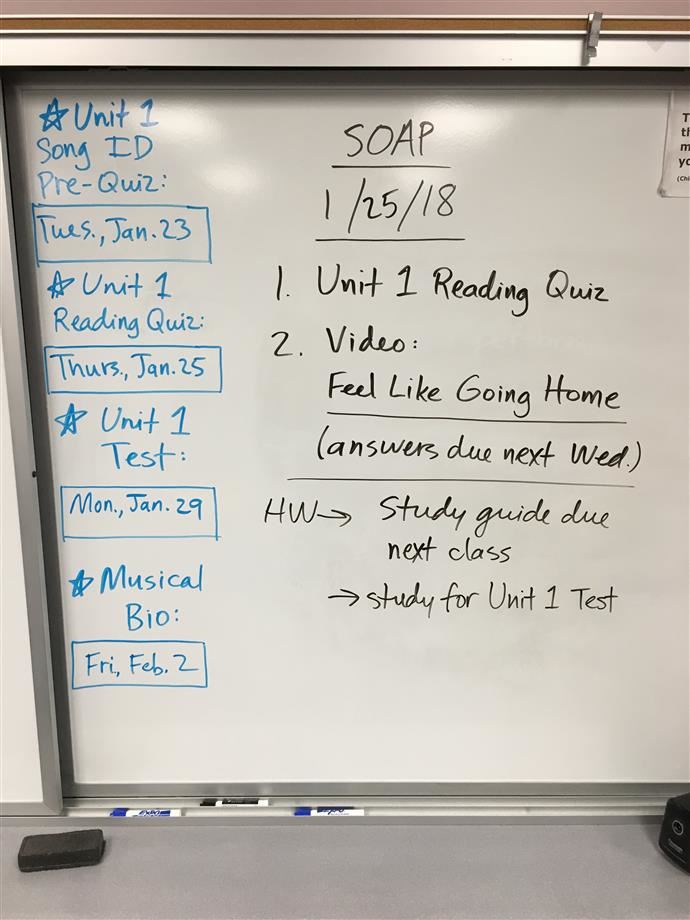 ☆ Unit 1
Song ID
Pre-Quiz:
Tues., Jan. 23
☆ Unit 1
Reading Quiz:
Thurs., Jan. 25
☆ Unit 1
Test:
Mon., Jan. 29
☆ Musical
Bio:
Fri, Feb. 2
SOAP
1/25/18
1. Unit 1 Reading Quiz
2. Video:
Feel Like Going Home
(answers due next Wed.)
HW→ Study guide due
next class
→ study for Unit 1 Test
EXPO